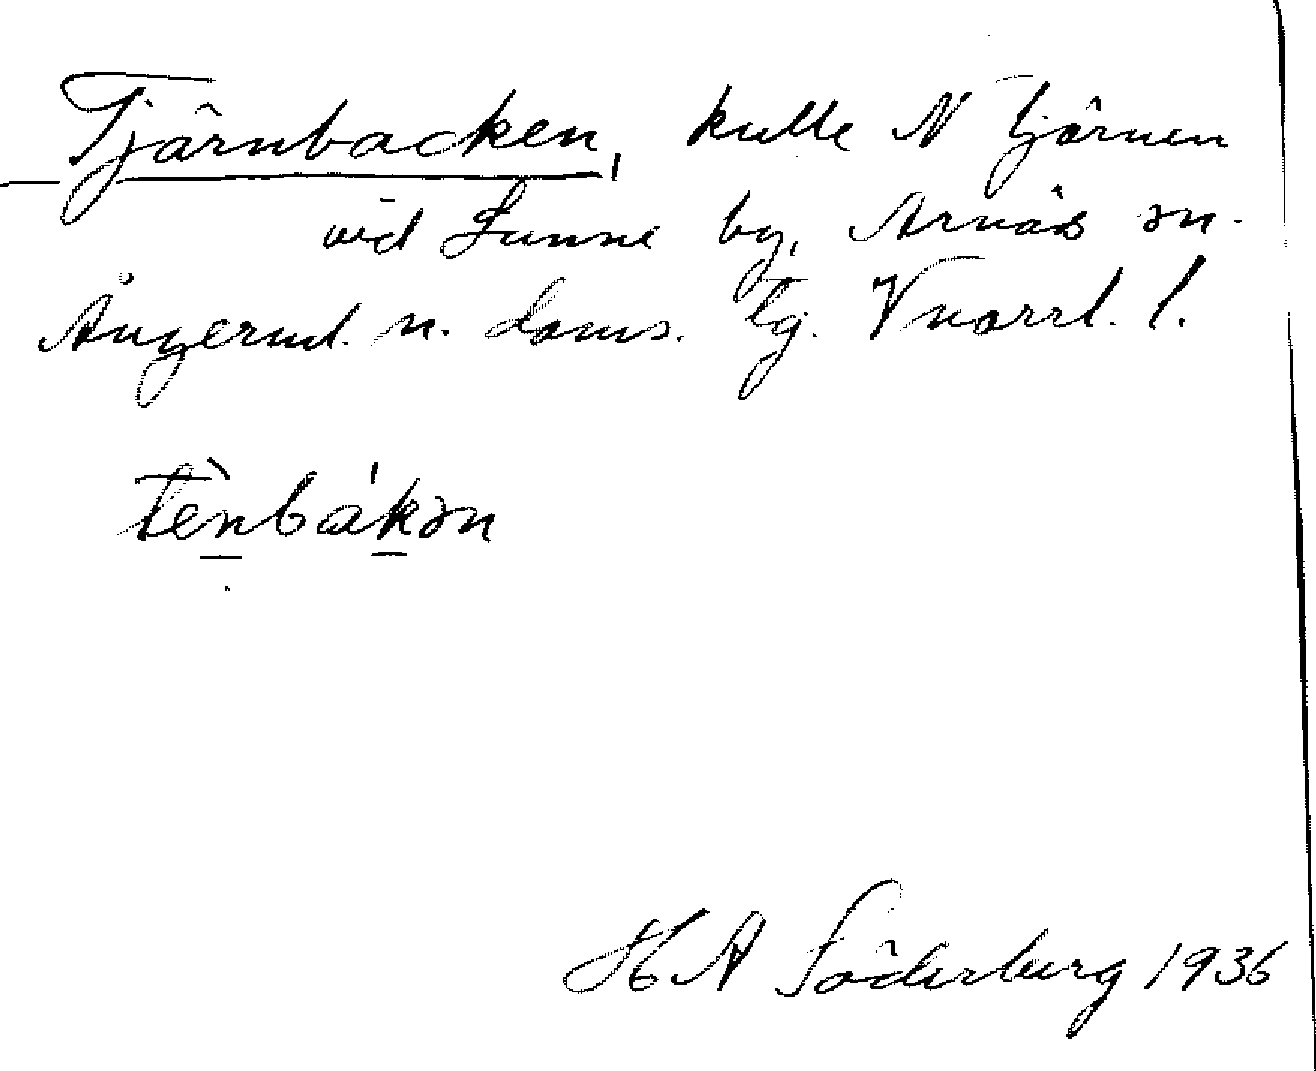 Tjärnbacken, kulle N Tjärnen
vid Sunne by, Arnäs sn.
Ångerml. n. doms. tg. Vnorrl. l.
tènbákən
H A Söderberg 1936